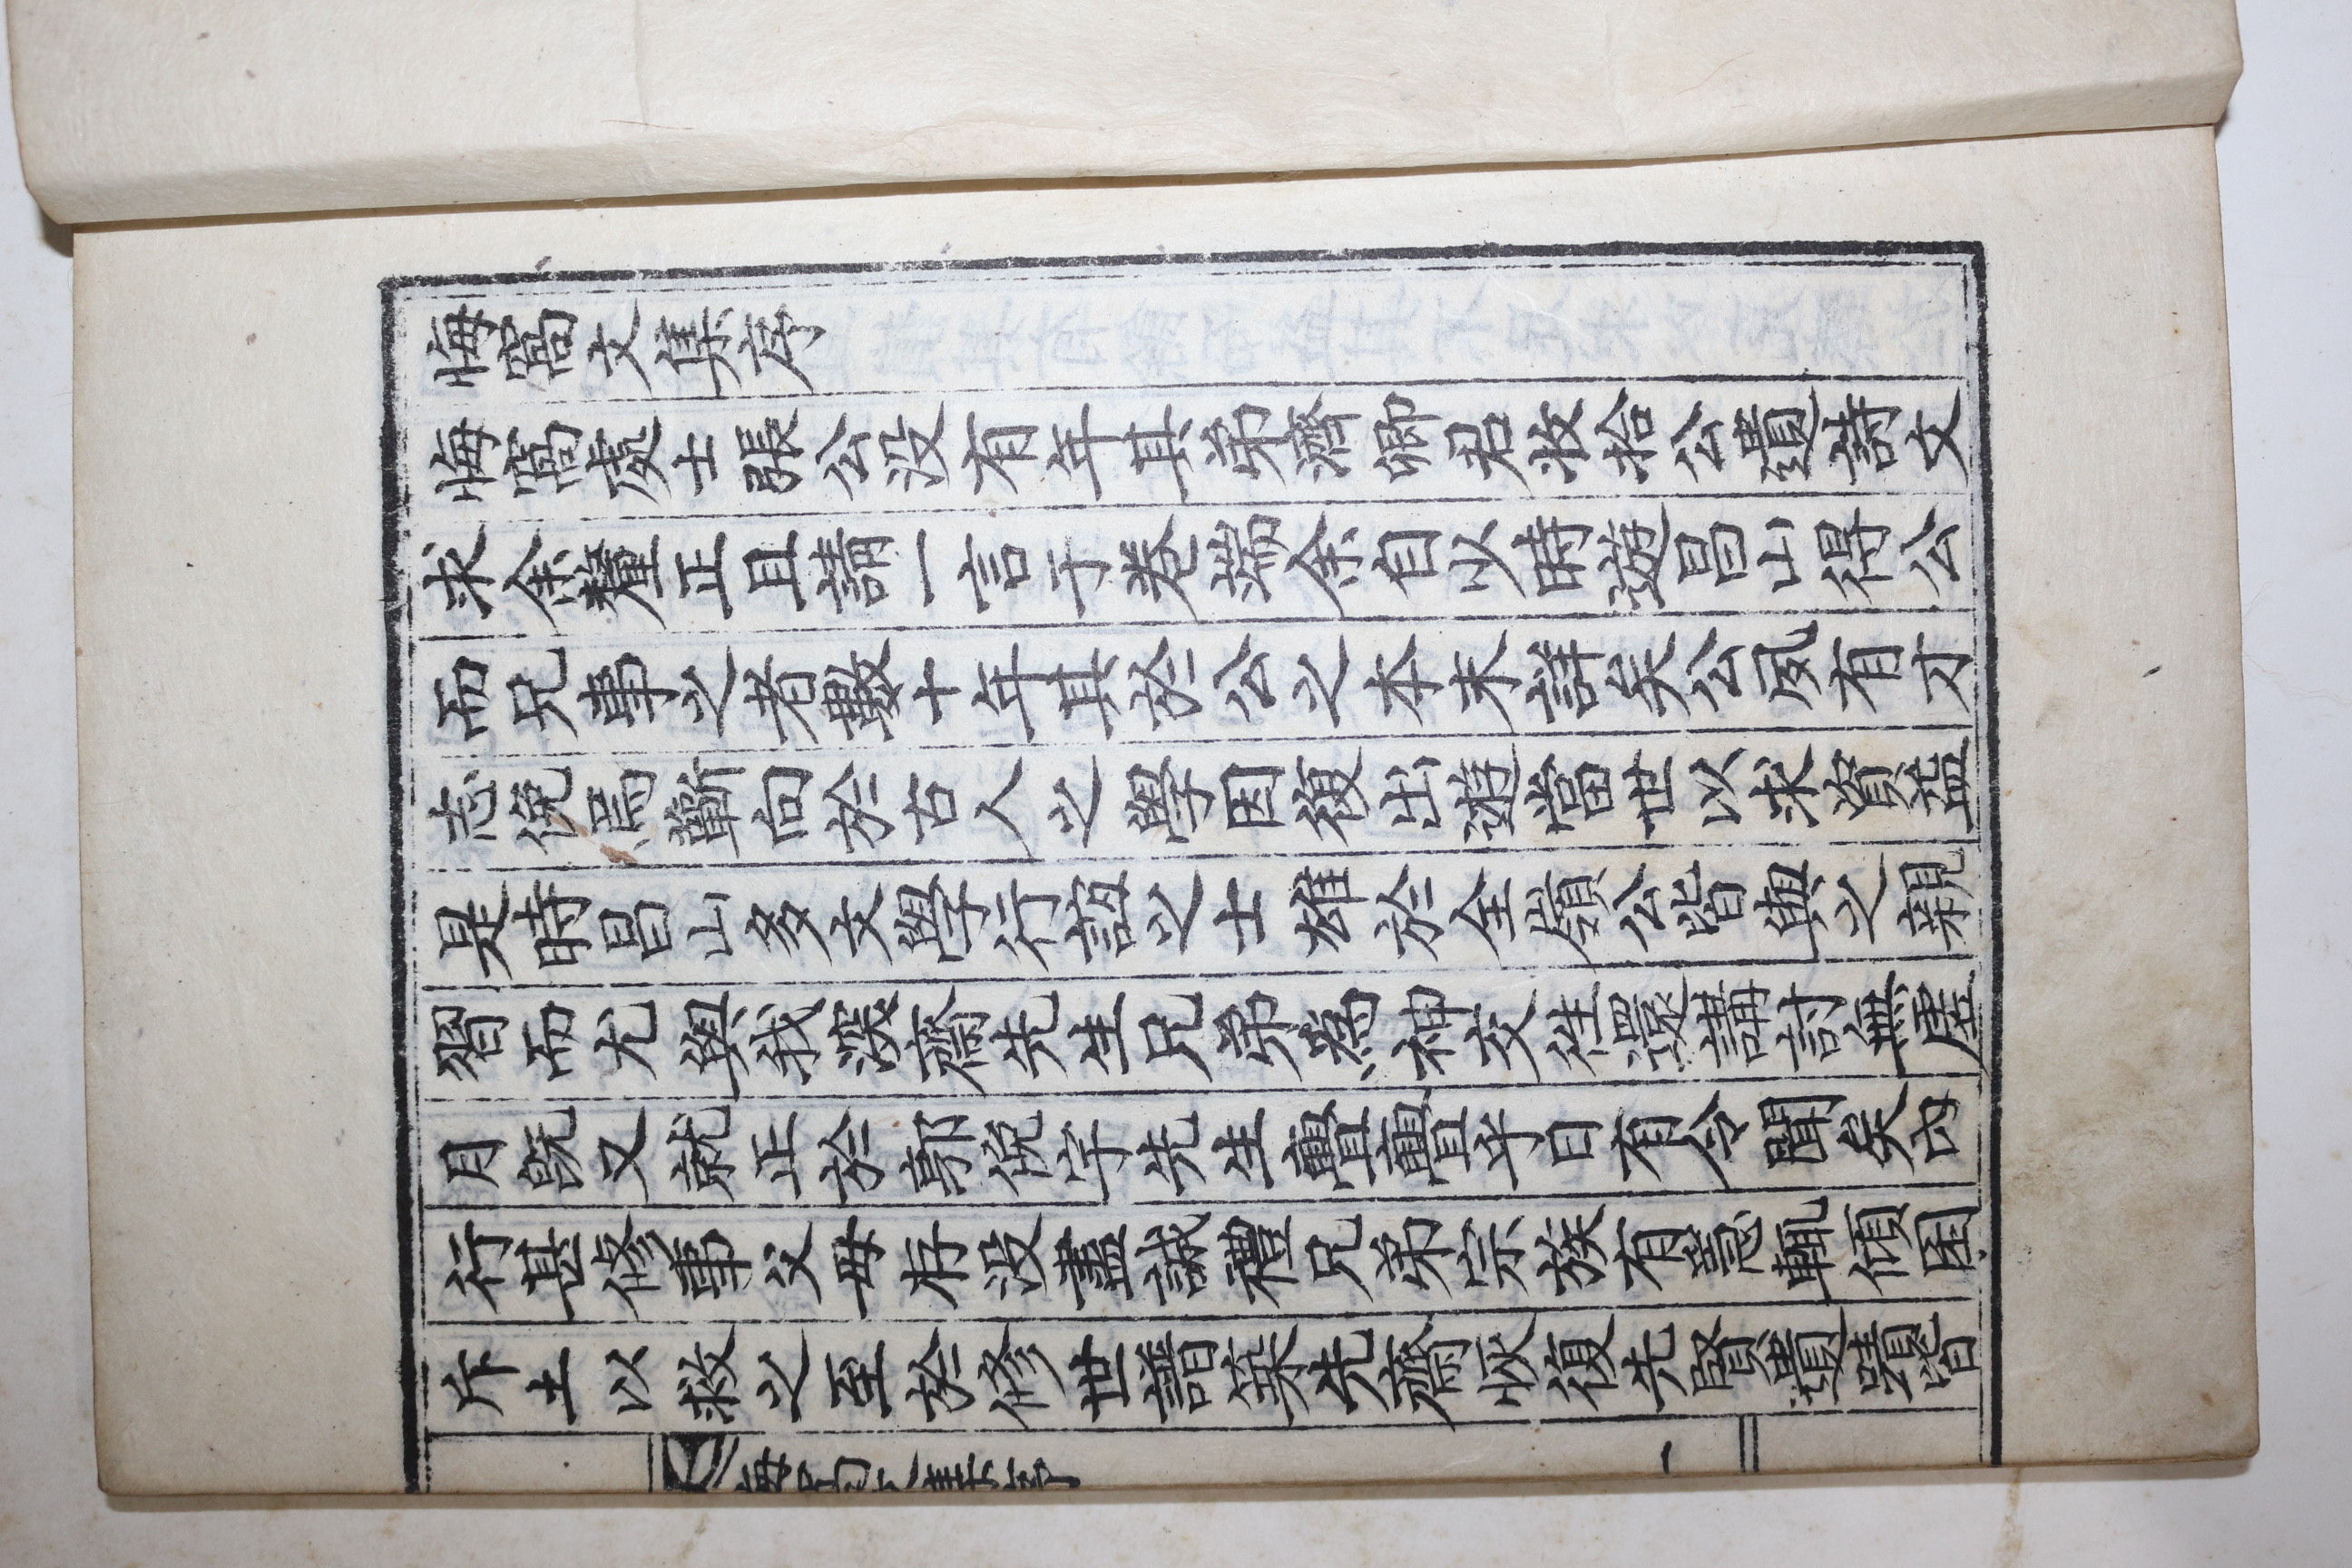 悔窩文集序
悔窩處士張公没有年其弟濟卿君收拾公遺詩文
求余釐正且請一言于卷端余自少時遊昌山得公
而兄事之者數十年其於公之本末詳矣公夙有才
志俛焉蘄向於古人之學因復出遊當世以求資益
是時昌山多文學行誼之士雄於全嶺公皆與之親
習而尤與我深齋先生兄弟為神交徃還講討無虛
月旣又就正於郭俛宇先生亹亹乎日有令聞矣內
行甚修事父母存没盡誠禮兄弟宗族有急輒傾囷
斥土以救之至於修世譜築先齋恢復先賢遺蹟皆
一